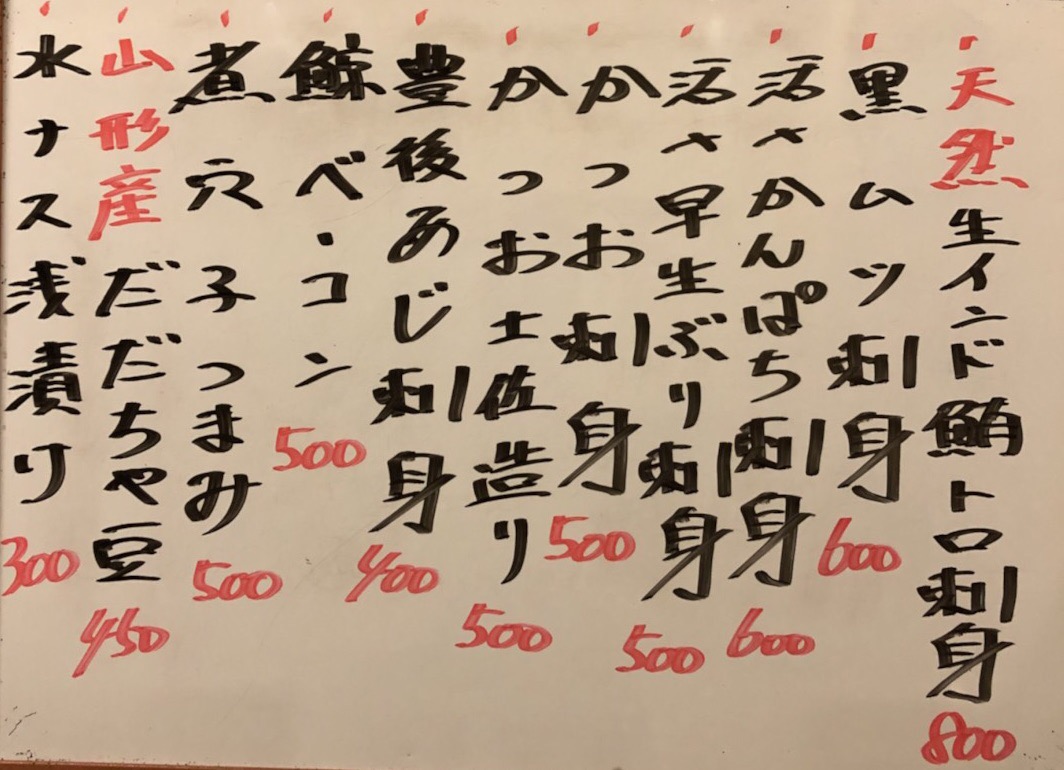 天然生インド鮪トロ刺身 800
黒ムツ刺身 600
活〆かんぱち刺身 600
活〆早生ぶり刺身 500
かつお刺身 500
かつお土佐造り 500
豊後あじ刺身 400
鯨ベ・コン 500
煮穴子つまみ 500
山形産だだちゃ豆 450
水ナス浅漬り 300